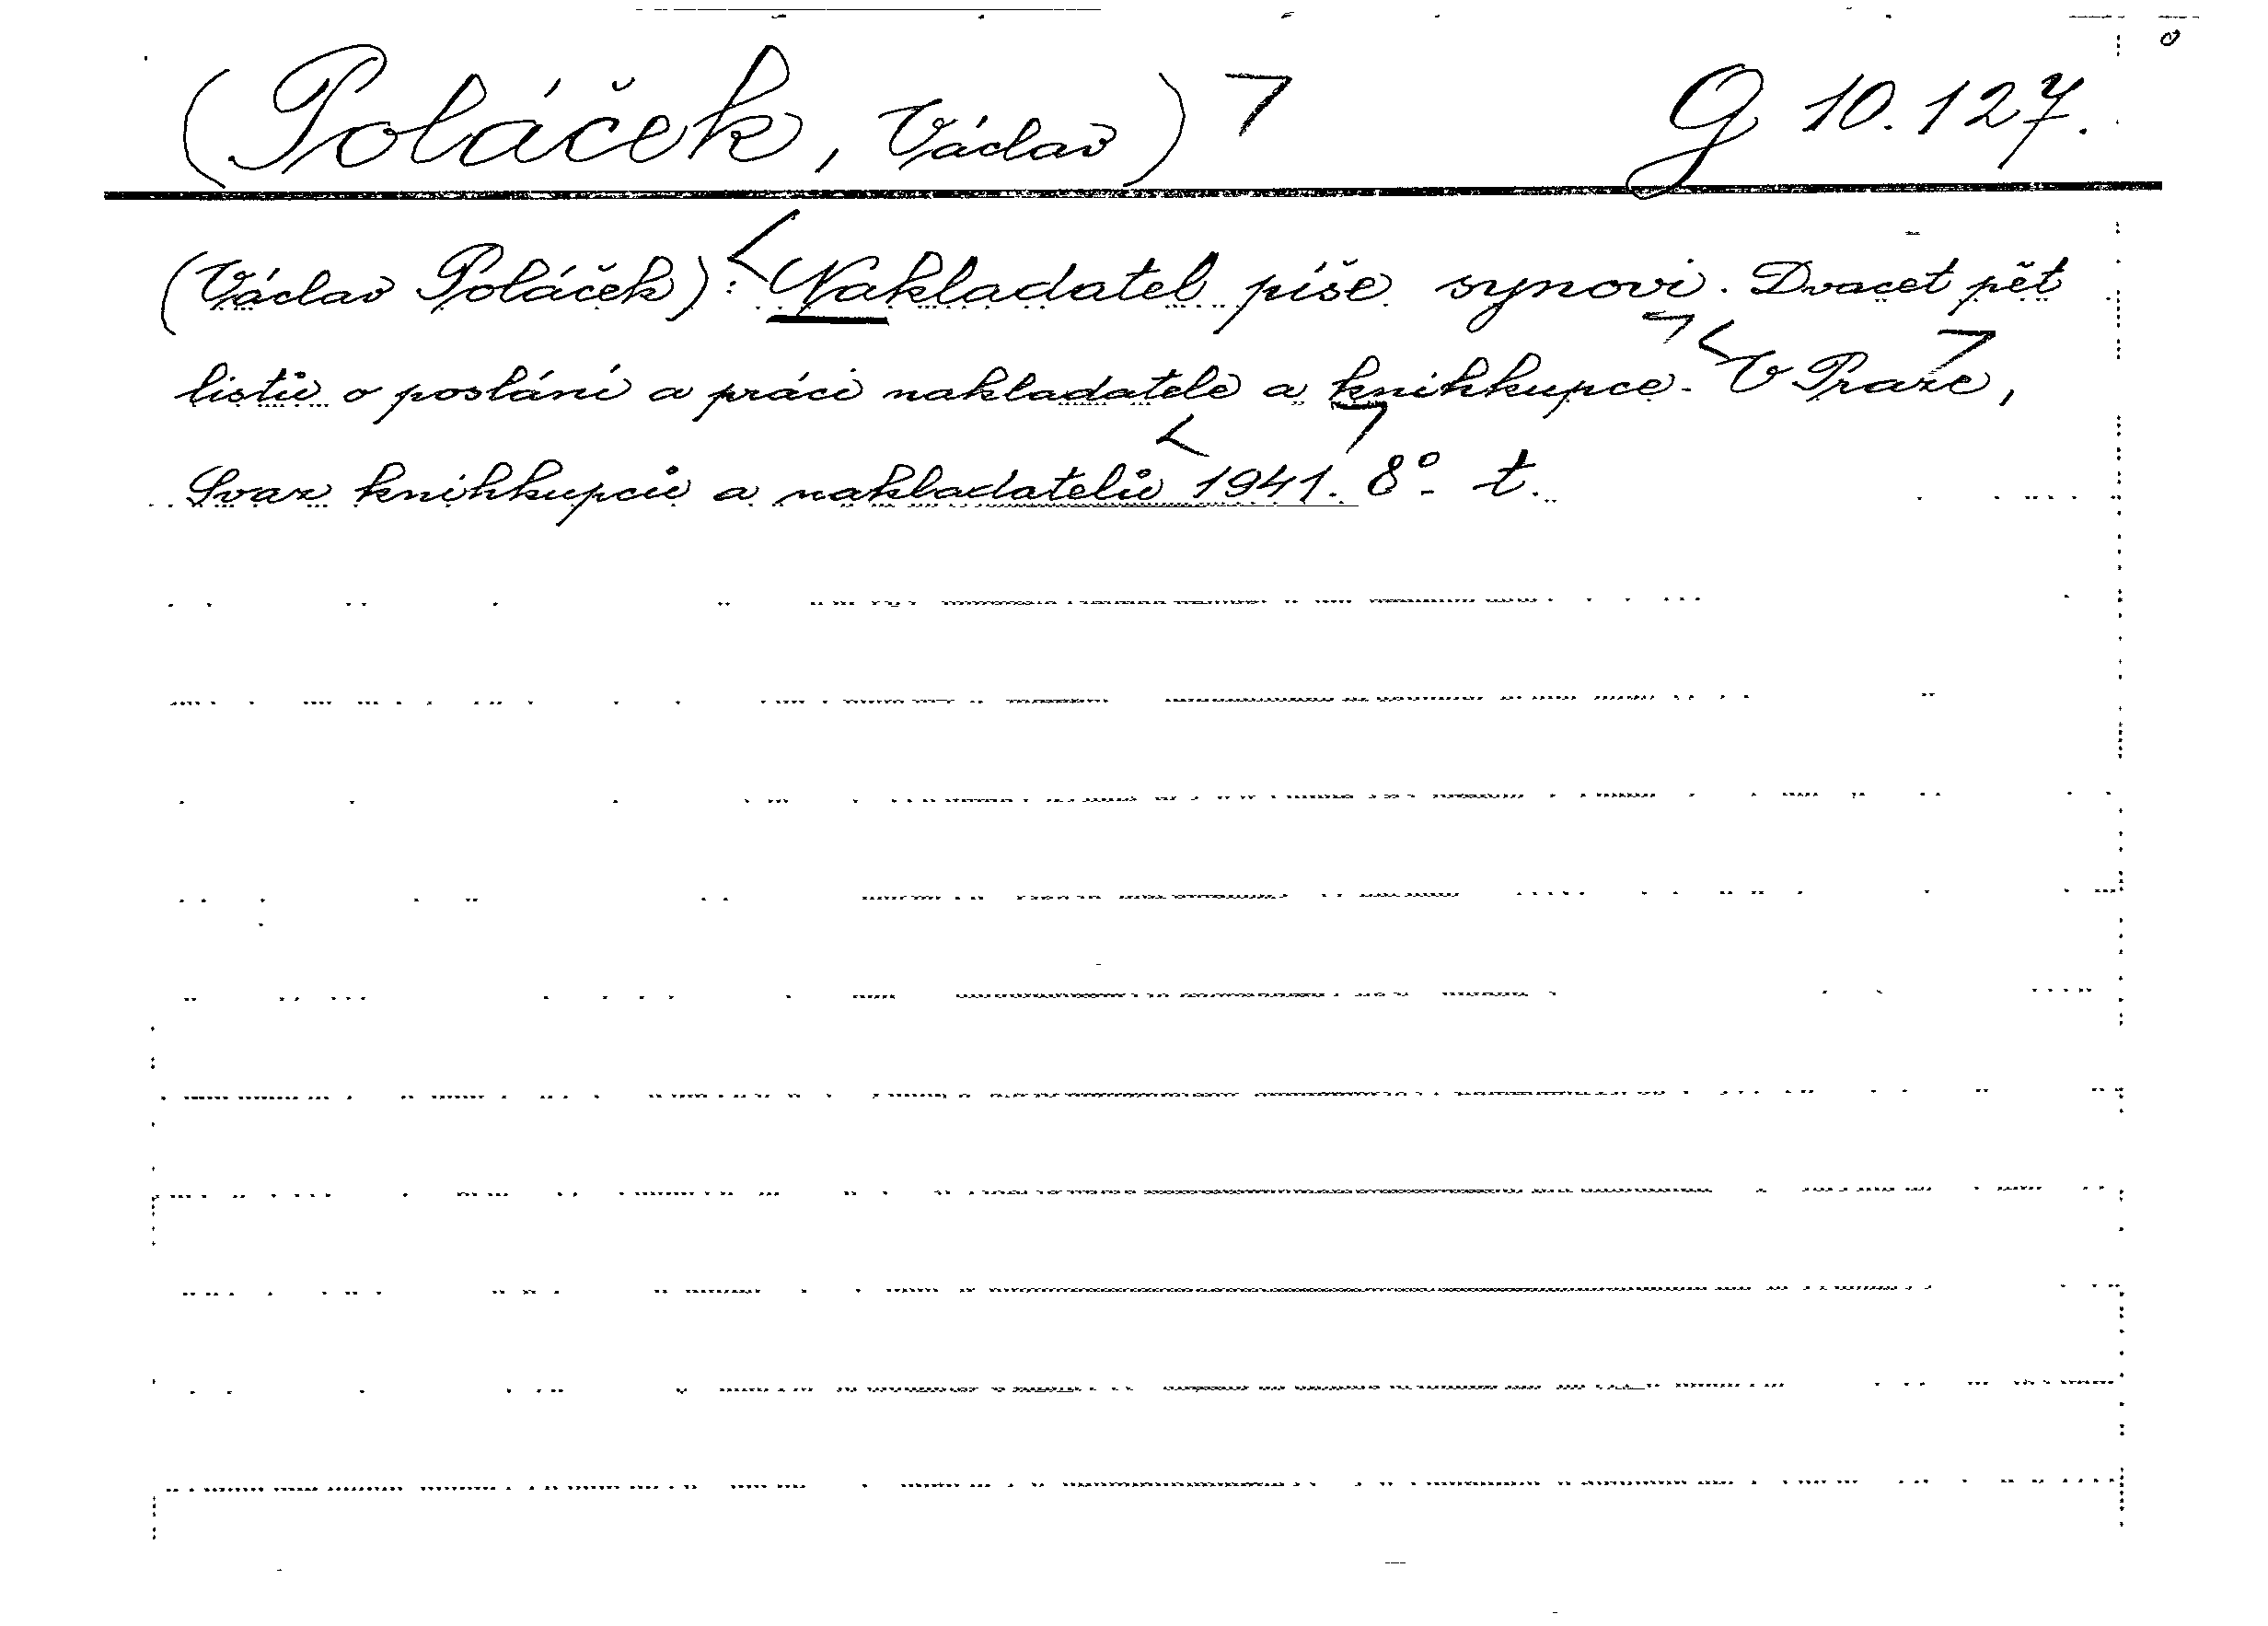 (Poláček, Václav) G 10.127.
(Václav Poláček): Nakladatel píše synovi. Dvacet pět
listů o poslání a práci nakladatele a knihkupce. V Praze,
Svaz knihkupců a nakladatelů 1941. 8°. t.